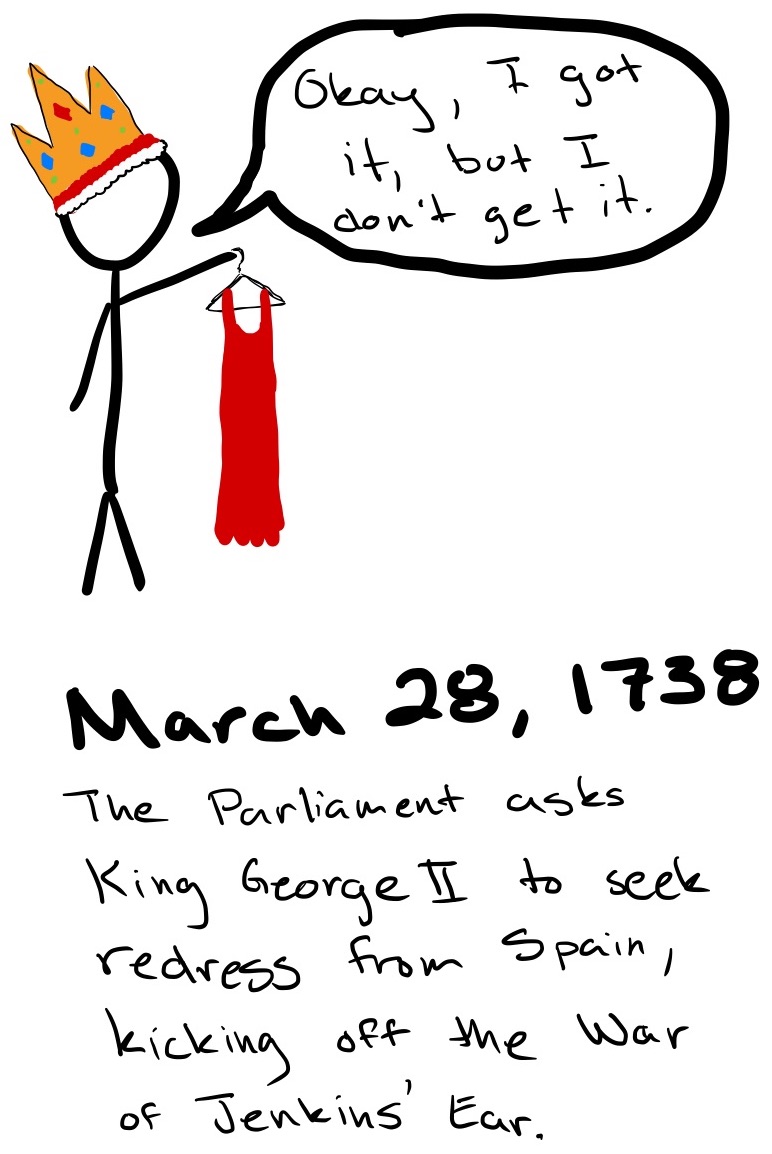 Okay, I got
it, but I
don't get it.
March 28, 1738
The Parliament asks
King George II to seek
redress from Spain,
kicking off the War
of Jenkins' Ear.